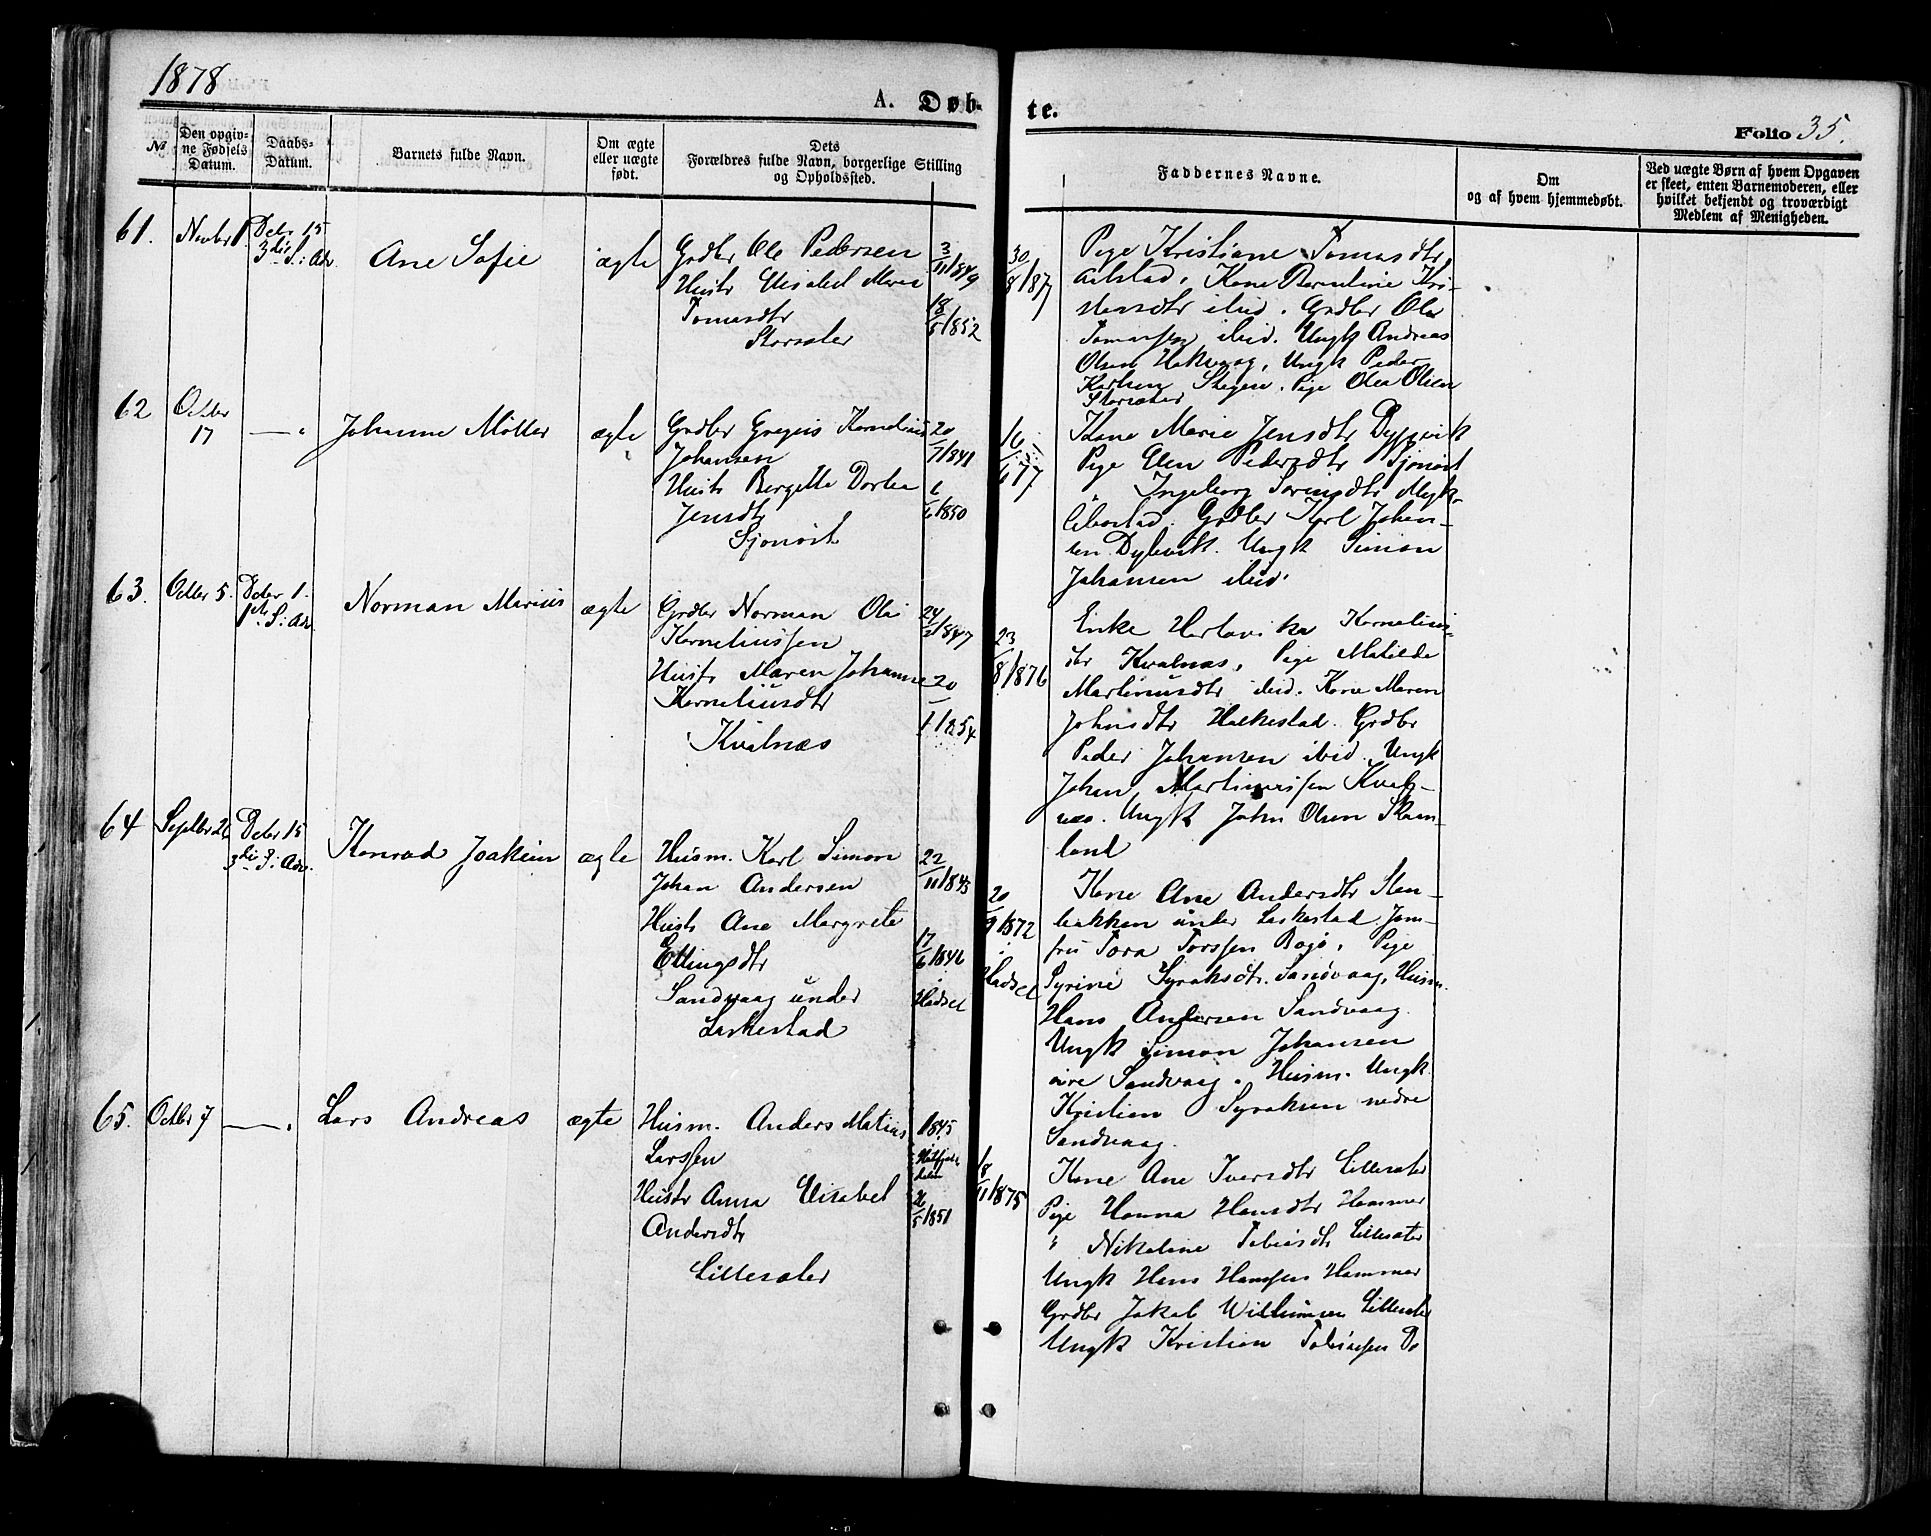 1878
A. Døb-
te.
Folio 35.
№
Den opgiv-
ne Fødsels
Datum.
Daabs-
Datum.
Barnets fulde Navn.
Om ægte
eller uægte
født.
Dets
Forældres fulde Navn, borgerlige Stilling
og Opholdssted.
Faddernes Navne.
Om
og af hvem hjemmedøbt.
Ved uægte Børn af hvem Opgaven
er skeet, enten Barnemoderen, eller
hvilket bekjendt og troværdigt
Medlem af Menigheden.
61.
Novbr 1
Decbr 15
3die S: Adv.
Ane Sofie
ægte
Grdbr Ole Pedersen
Hustr Elisabet Maria
Tomasdtr
Storsæter
3/11 1849
18/5 1852
30/8 187
Pige Kristiane Tomasdtr
Kone Berntine Kri-
stensdtr ibid. Grdbr Ole
Tomassen ibid. Ungk Andreas
Olsen Haknvaag, Ungk Peder
Karlsen Skagen. Pige Olea Olsen
Storsæter
62
Octbr
17
—"
Johanne Möller
ægte
Grdbr Gregus Kornelius
Johansen
Hustr Bergette Dortea
Jensdtr
Sjonöst
20/7 1841
6/6 1850
16/6 77
Kone Marie Jensdtr Dypvik
Pige Elen Pedersdtr Sjonöst
" Ingeborg Sörensdtr Myk-
lebostad. Grdbr Karl Johan-
sen Dybvik. Ungk Simon
Johansen ibid.
63.
Octbr 5.
Decbr 1.
1ste S: Adv.
Norman Marius
ægte
Grdbr Norman Olai
Korneliussen
Hustr Maren Johanne
Korneliusdtr
Kvalnæs
1847
20/1 1854
23/8 1876
Enke Hartvika Kornelius-
dtr Kvalnæs, Pige Matilde
Martinusdtr ibid. Kone Maren
Johnsdtr Halkestad. Grdbr
Peder Johansen ibid. Ungk
Johan Martinussen Kval-
næs. Ungk John Olsen Skom-
land
64
Septbr 26
Decbr 15
3die S: Adv.
Konrad Joakim
ægte
Husm. Karl Simon
Johan Andersen
Hustr Ane Margrete
Ellingsdtr
Sandvaag under
Laskestad
22/11 1843
17/6 1846
Hadsel
20/9 1872
Hadsel
Kone Ane Andersdtr Sten-
bakken under Laskestad Jom-
fru Tora Torssen Bogö, Pige
Syrine Syraksdtr. Sandvaag, Husm.
Hans Andersen Sandvaag.
Ungk Simon Johansen
övre Sandvaag. Husm. Ungk.
Kristian Syraksen nedre
Sandvaag.
65.
Octbr 7
—"
Lars Andreas
ægte
Husm. Anders Matias
Larssen
Hustr Anna Elisabet
Andersdtr
Lillesæter
1845
26/5 1851
18/11 1875
Kone Ane Iversdtr Lillesæter
Pige Hanna Hansdtr Hammer
" Nikoline Tobiasdtr Lillesæter
Ungk Hans Hanssen Hammer
Grdbr Jakob Willumsen Lillesæter
Ungk Kristian Tobiassen Do